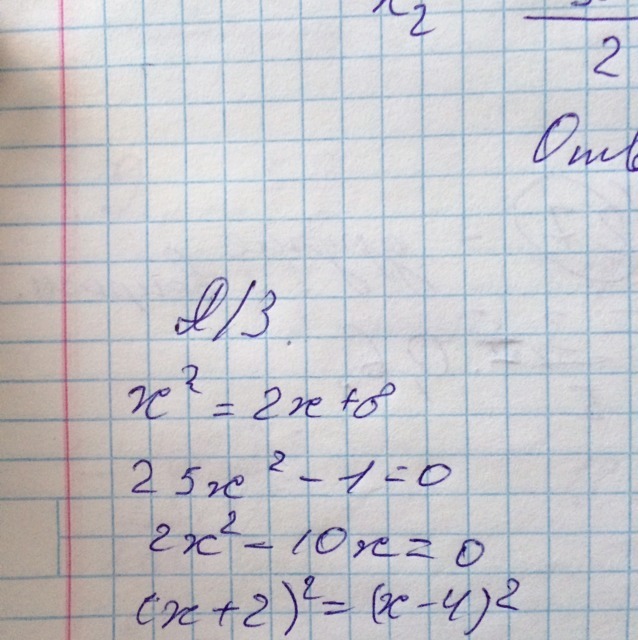 x₂
2
Отв
Д/З.
x² = 2x+8
25x² - 1 = 0
2x² - 10x = 0
(x+2)² = (x-4)²